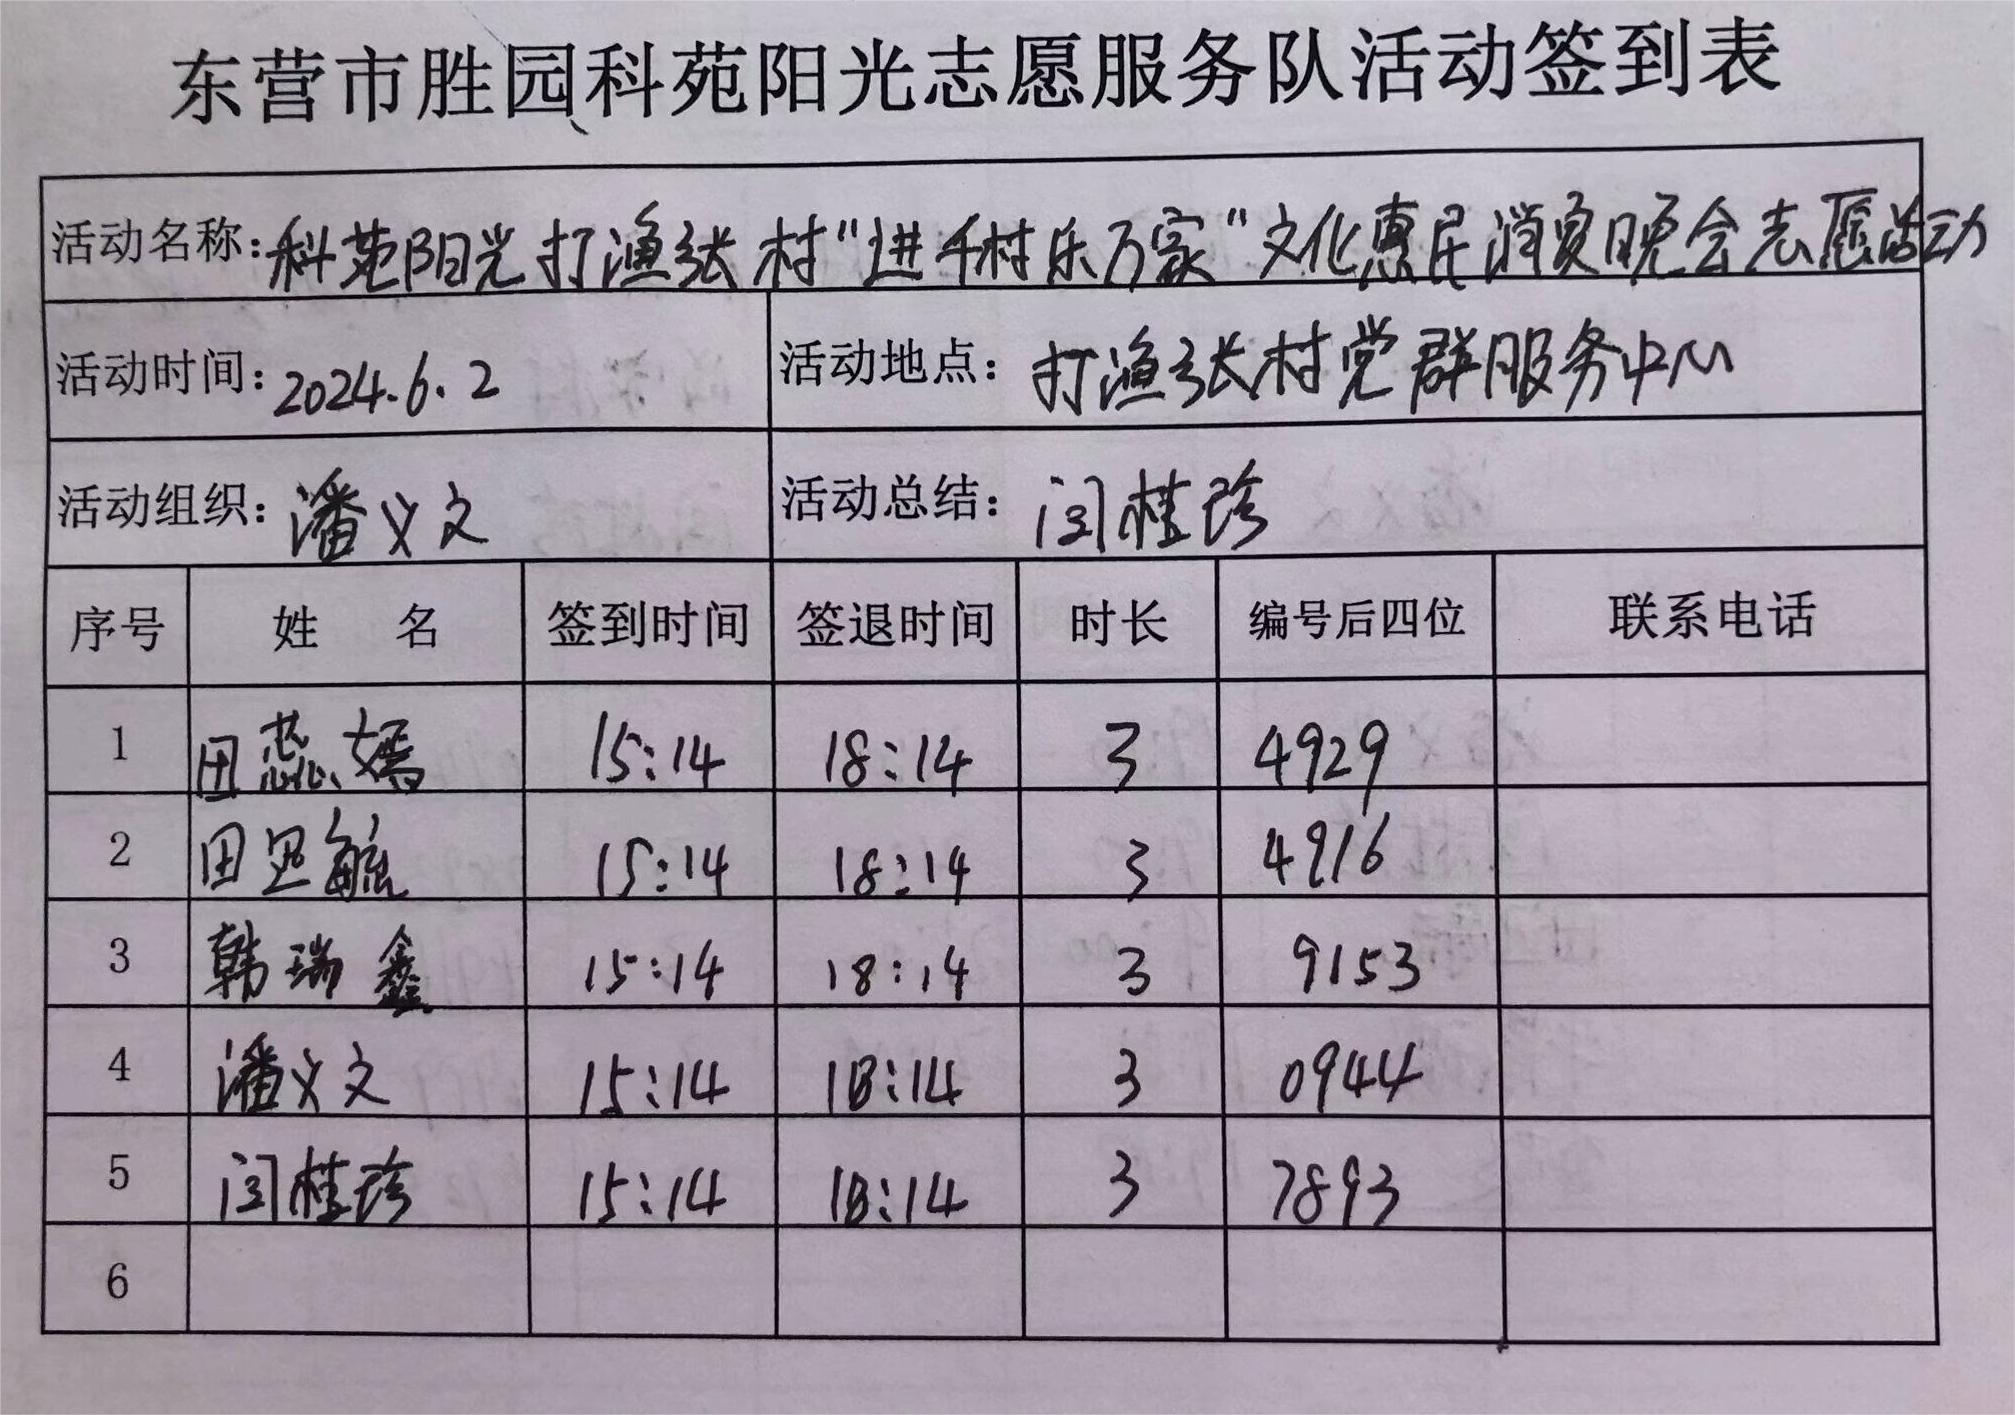 东营市胜园科苑阳光志愿服务队活动签到表
活动名称：科苑阳光打渔张村“进千村乐万家”文化惠民消夏晚会志愿活动
活动时间：2024.6.2 活动地点：打渔张村党群服务中心
活动组织：潘义文 活动总结：闫桂珍
序号 姓 名 签到时间 签退时间 时长 编号后四位 联系电话
1 田蕊嫣 15:14 18:14 3 4929
2 田 毓 15:14 18:14 3 4916
3 韩瑞鑫 15:14 18:14 3 9153
4 潘义文 15:14 18:14 3 0944
5 闫桂珍 15:14 18:14 3 7893
6